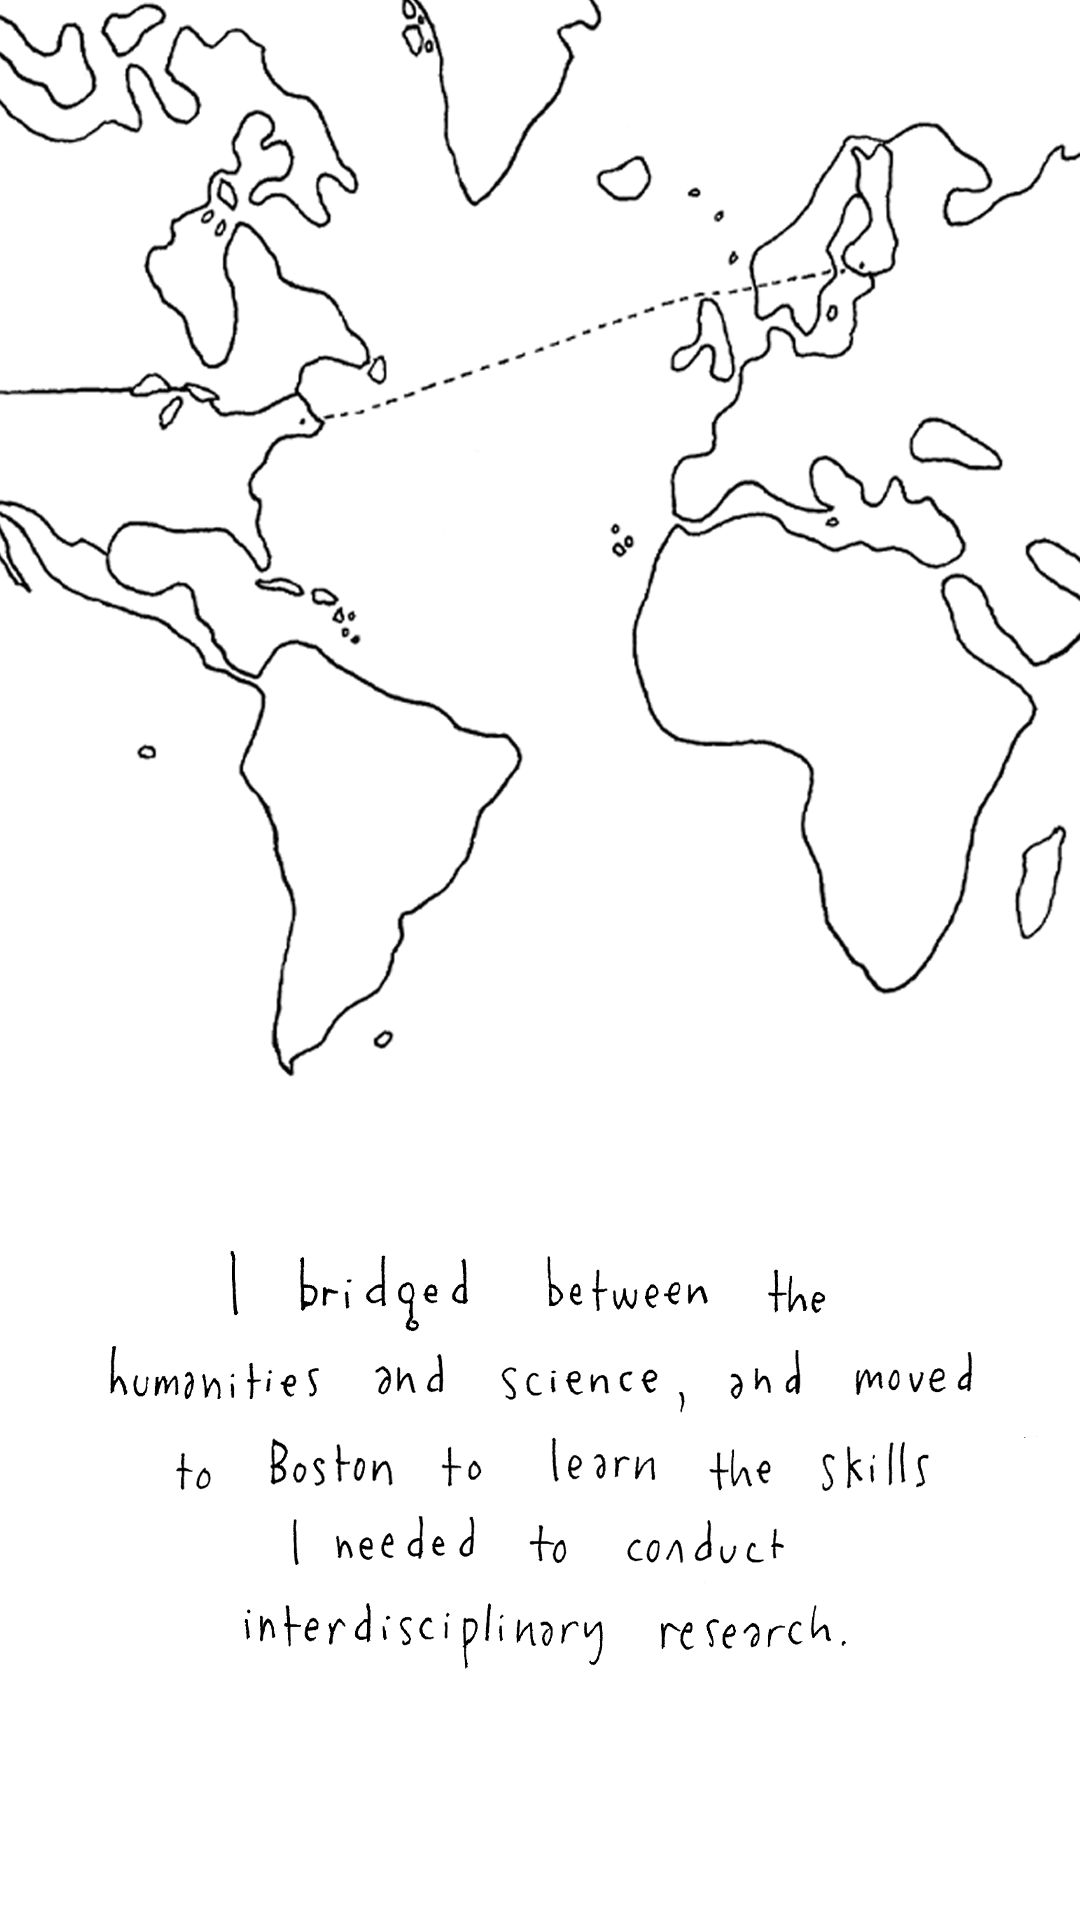 I bridged between the
humanities and science, and moved
to Boston to learn the skills
I needed to conduct
interdisciplinary research.